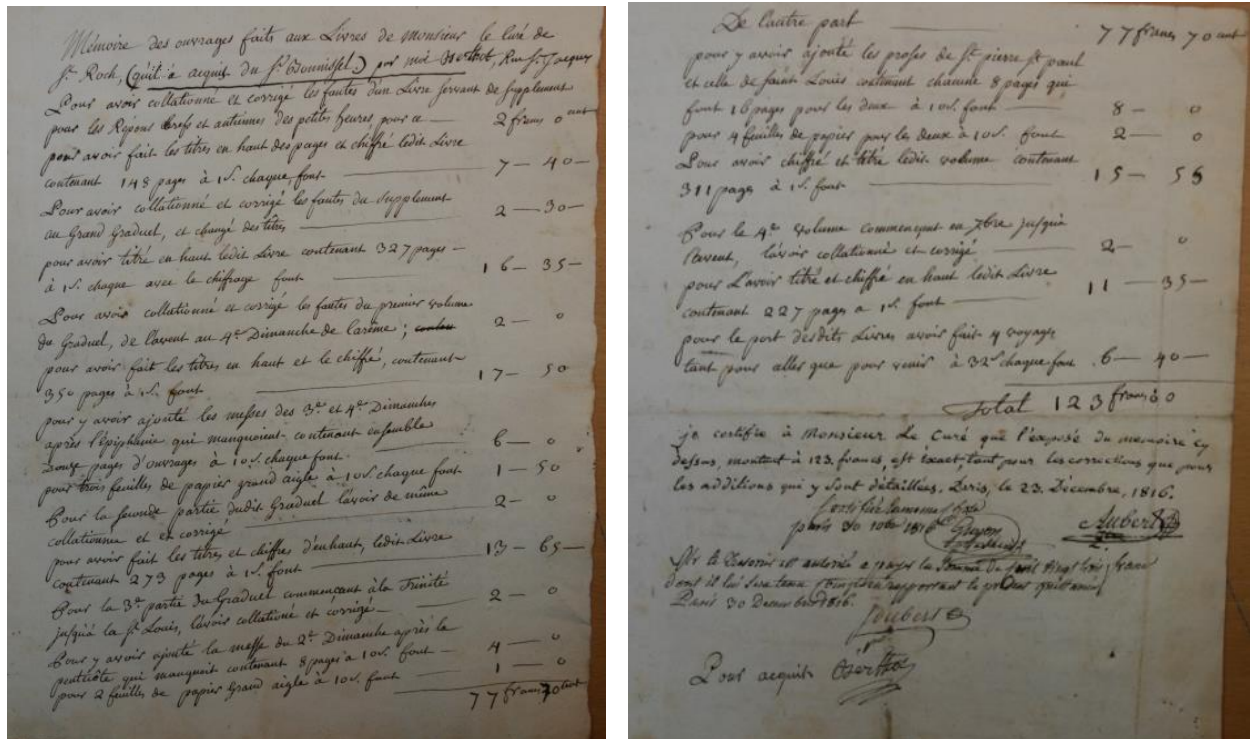 Mémoire des ouvrages faits aux Livres de Monsieur le Curé de
St. Roch, (qu'il a acquit du Sr. Bonnissel) par moi Berthot, Rue St. Jacques
Pour avoir collationné et corrigé les fautes d'un Livre servant de Supplement
pour les Répons brefs et antiennes des petites heures pour ce — 2 francs 0 cent
pour avoir fait les titres en haut des pages et chiffré ledit Livre
contenant 148 pages à 1 s. chaque, font — 7 — 40 —
Pour avoir collationné et corrigé les fautes du Supplement
au Grand Graduel, et changé des titres — 2 — 30 —
pour avoir titré en haut ledit Livre contenant 327 pages —
à 1 s. chaque avec le chiffrage font 16 — 35 —
Pour avoir collationné et corrigé les fautes du premier volume
du Graduel, de l'avent au 4e. Dimanche de Carême; 2 — 0
pour avoir fait les titres en haut et le chiffré, contenant
350 pages à 1 s. font — 17 — 50
pour y avoir ajouté les messes des 3e. et 4e. Dimanches
après l'Epiphanie qui manquoient contenant ensemble
Douze pages d'ouvrages à 10 s. chaque font — 6 — 0
pour trois feuilles de papier grand aigle à 10 s. chaque font 1 — 50
Pour la seconde partie dudit Graduel l'avoir de même
collationné et corrigé — 2 — 0
pour avoir fait les titres et chiffres d'en haut, ledit Livre
contenant 273 pages à 1 s. font — 13 — 65 —
Pour la 3e. partie du Graduel commençant à la Trinité
jusqu'à la St. Louis, l'avoir collationné et corrigé — 2 — 0
Pour y avoir ajouté la messe du 2e. Dimanche après la
pentecôte qui manquoit contenant 8 pages à 10 s. font — 4 — 0
pour 2 feuilles de papier Grand aigle à 10 s. font — 1 — 0
77 francs 70 cent
De l'autre part — 77 francs 70 cent
pour y avoir ajouté les proses de St. pierre St. paul
et celle de Saint Louis contenant chacune 8 pages qui
font 16 pages pour les deux à 10 s. font — 8 — 0
pour 4 feuilles de papier pour les deux à 10 s. font 2 — 0
Pour avoir chiffré et titré ledit volume contenant
311 pages à 1 s. font — 15 — 55
Pour le 4e. volume commençant en 7bre jusqu'à
l'avent, l'avoir collationné et corrigé 2 — 0
pour L'avoir titré et chiffré en haut ledit Livre
contenant 227 pages a 1 s. font — 11 — 35 —
pour le port desdits Livres avoir fait 4 voyages
tant pour aller que pour venir à 32 s. chaque font 6 — 40 —
Total 123 francs 0
je certifie à Monsieur Le Curé que l'exposé du memoire cy
dessus, montant à 123. francs, est exact, tant pour les corrections que pour
les additions qui y sont détaillées. Paris, le 23. Décembre, 1816.
Aubert
paris 30 1816
Mr le Tresorier est autorisé a payer la Somme de Cent vingt trois francs
dont il lui sera tenu rapportant le présent quittancé
Paris 30 Decembre 1816.
Pour acquit Berthot